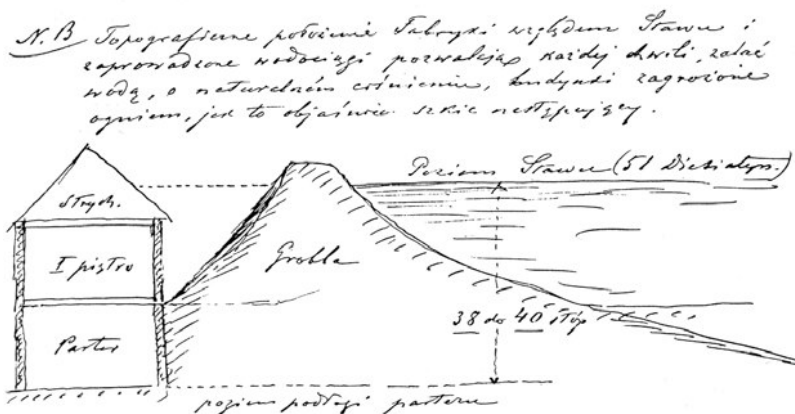 N.B Topograficzne położenie Fabryki względem Stawu i
zaprowadzone wodociągi pozwalają każdej chwili, zalać
wodą, o naturalném ciśnieniu, budynki zagrożone
ogniem, jak to objaśnia szkic następujący.
Poziom Stawu (51 Diesiatyn.)
Strych.
I piętro
Grobla
38 do 40 stóp
Parter
poziom podłogi parteru